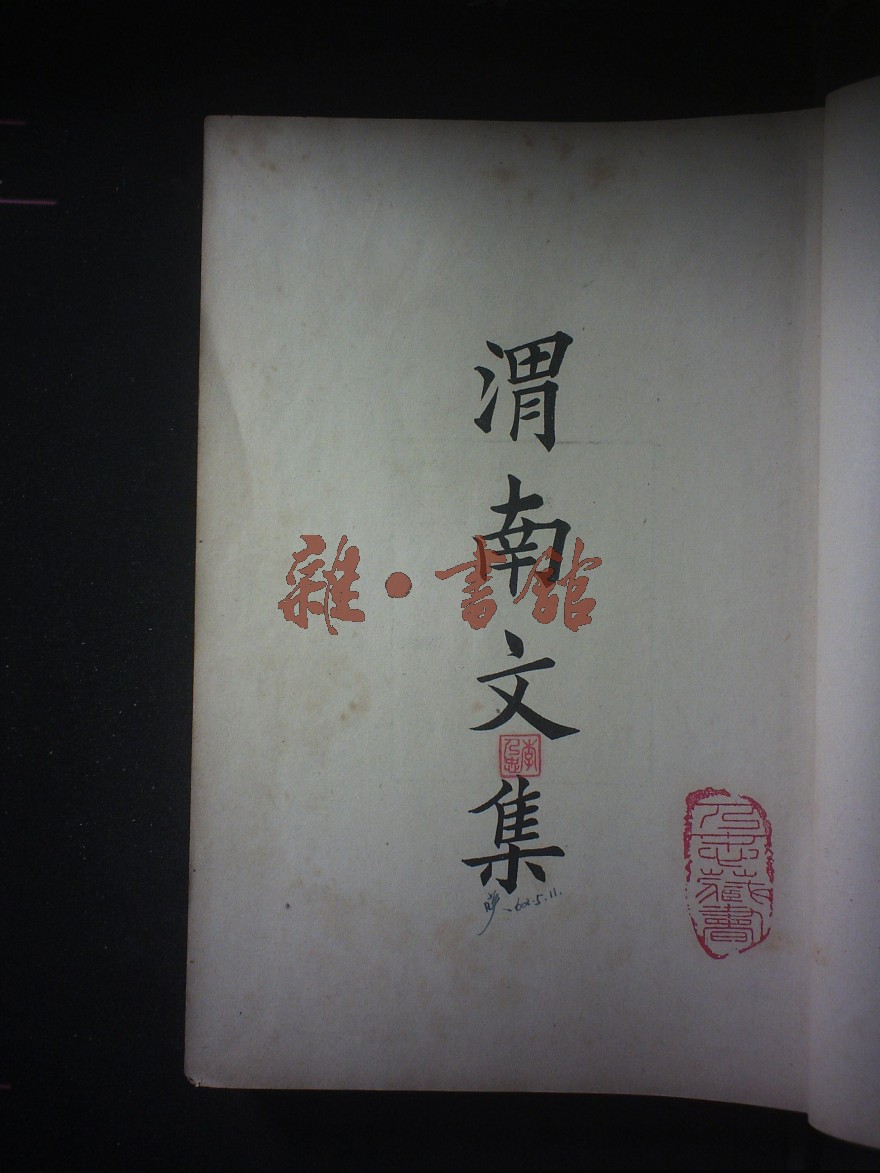 渭南文集
雜·書館
602.5.11.
志藏書